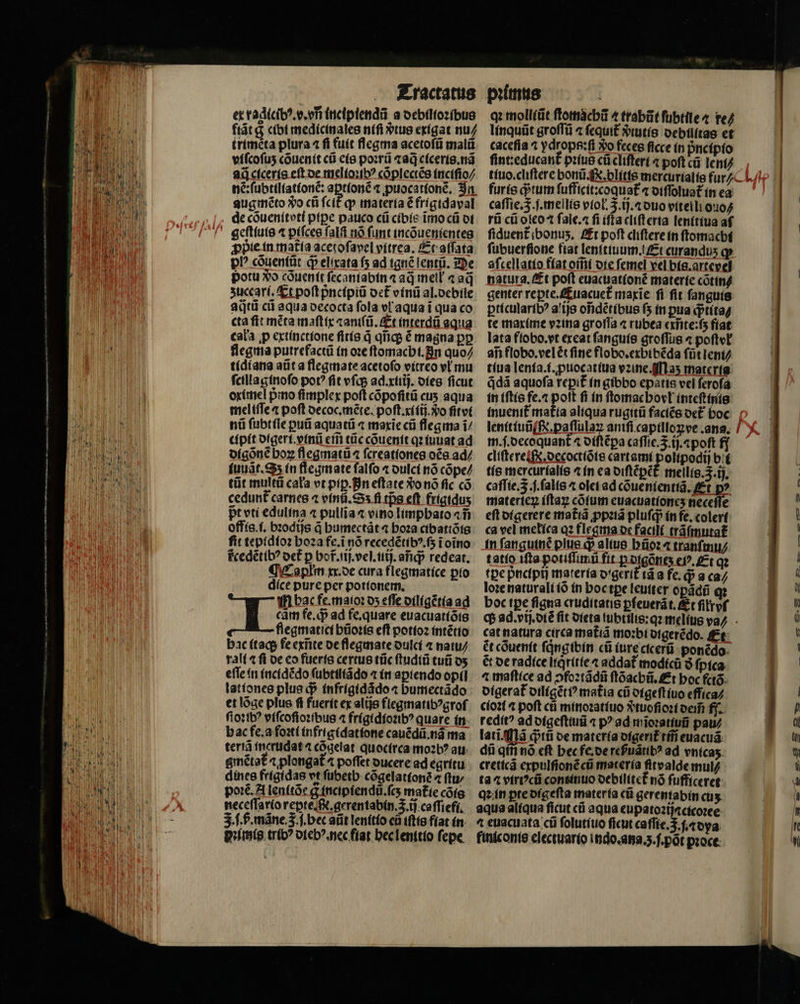 Tractatus primus
ex radicibꝰ.v.vñ incipiendũ a debiliozibus
fiãt q̃ cibi medicinales niſi ꝟtus exigat nu⸗
trimẽta plura ⁊ ſi fuit flegma acetoſũ malũ
viſcoſuʒ cõuenit cũ eis poꝛrũ ⁊ aq̃ ciceris.nã
aq̃ ciceris eſt de melioꝛibꝰ cõplectẽs inciſio⸗
nẽ:ſubtiliationẽ: aptionẽ ⁊ ꝓuocationẽ. In
augmẽto ꝟo cũ ſcit̃ ꝙ materia ẽ frigida val
de cõuenit vti pipe pauco cũ cibis imo cũ di
geſtiuis ⁊ piſces ſalſi nõ ſunt incõuenientes
ꝓpie.in mat̃ia acetoſa vel vitrea. Et aſſata
plꝰ cõueniũt q̃ elixata ſʒ ad ignẽ lentũ. De
potu ꝟo cõuenit ſecaniabin ⁊ aq̃ mell̃ ⁊ aq̃
ʒuccari. Et poſt pͥncipiũ det̃ vinũ al. debile
aq̃tũ cũ aqua decocta ſola vl̃ aqua ĩ qua co
cta ſit mẽta maſtix ⁊ aniſũ. Et interdũ aqua
cal̃a ꝓ extinctione ſitis q̃ qñqʒ ẽ magna ꝓp
flegma putrefactũ in oꝛe ſtomachi. In quo⸗
tidiana aũt a flegmate acetoſo vitreo vl̃ mu
ſcillaginoſo potꝰ ſit vſqʒ ad.xiiij. dies ſicut
oximel pͥmo ſimplex poſt cõpoſitũ cuʒ aqua
meliſſe ⁊ poſt decoc.mẽte. poſt.xiiij.ꝟo ſit vi
nũ ſubtile puũ aquatũ ⁊ maxie cũ flegma ĩ⸗
cipit digeri.vinũ eĩ tũc cõuenit qꝛ iuuat ad
digõnẽ hoꝝ flegmatũ ⁊ ſcreationes oẽs ad⸗
iuuãt. Sʒ in flegmate ſalſo ⁊ dulci nõ cõpe⸗
tũt multũ cal̃a vt pip. In eſtate ꝟo nõ ſic cõ
cedunt̃ carnes ⁊ vinũ. Sʒ ſi tp̃s eſt frigiduʒ
p̃t vti edulina ⁊ pullina ⁊ vino limphato ⁊ ñ
offis.i. bꝛodijs q̃ humectãt ⁊ hoꝛa cibatiõis
ſit tepidioꝛ hoꝛa fe.ĩ nõ recedẽtibꝰ.ſʒ ĩ oĩno
recedẽtibꝰ det̃ p hoꝛ.iij.vel.iiij. añq̃ redeat.
¶ Caplm xx.de cura flegmatice ꝓio
dice pure per potionem.
In hac fe.maioꝛ dʒ eſſe diligẽtia ad
cam fe.q̃ ad fe.quare euacuatiõis
flegmatici hũoꝛis eſt potioꝛ intẽtio
hac itaqʒ fe exñte de flegmate dulci ⁊ natu⸗
rali ⁊ ſi de eo fueris certus tũc ſtudiũ tuũ dʒ
eſſe in incidẽdo ſubtiliãdo ⁊ in apiendo opil
lationes plus q̃ infrigidãdo ⁊ humectãdo
et lõge plus ſi fuerit ex alijs flegmatibꝰ groſ
ſioꝛibꝰ viſcoſioꝛibus ⁊ frigidioꝛibꝰ quare in
hac fe.a foꝛti infrigidatione cauẽdũ.nã ma
teriã incrudat ⁊ cõgelat quocirca moꝛbꝰ au
gmẽtat̃ ⁊ plongat̃ ⁊ poſſet ducere ad egritu
dines frigidas vt ſubeth cõgelationẽ ⁊ ſtu⸗
poꝛẽ. A lenitõe q̃ incipiendũ.ſcʒ mat̃ie cõis
neceſſario repte. ℞.gerentabin.ʒ.ij.caſſiefi.
ʒ.ſ.ẞ.mãne.ʒ.j.hec aũt lenitio cũ iſtis fiat in
pꝛimis tribꝰ diebꝰ.nec fiat hec lenitio ſepe
qꝛ molliũt ſtomachũ ⁊ trahũt ſubtile ⁊ re⸗
linquũt groſſũ ⁊ ſequit̃ ꝟtutis debilitas et
cacefia ⁊ ydrops:ſi ꝟo feces ſicce in pͥncipio
ſint:educant̃ pꝛius cũ cliſteri ⁊ poſt cũ leni⸗
tiuo.cliſtere bonũ. ℞.blitis mercurialis fur⸗
furis q̃tum ſufficit:coquat̃ ⁊ diſſoluat̃ in ea
caſſie.ʒ.ſ.mellis viol.̃ ʒ.ij.⁊ duo vitelli ouo⸗
rũ cũ oleo ⁊ ſale.⁊ ſi iſta cliſteria lenitiua aſ
ſiduent̃ bonuʒ. Et poſt cliſtere in ſtomachi
ſubuerſione fiat lenitiuum. Et curanduʒ ꝙ
aſcellatio fiat oĩ die ſemel vel bis.arte vel
natura. Et poſt euacuationẽ materie cõtin⸗
genter repte. Euacuet̃ maxie ſi ſit ſanguis
pticularibꝰ alijs oñdẽtibus ſʒ in pua q̃tita⸗
te maxime vꝛina groſſa ⁊ rubea exñte:ſʒ fiat
lata flobo.vt exeat ſanguis groſſus ⁊ poſtel̃
añ flobo.vel ẽt ſine flobo.exhibẽda ſũt leni⸗
tiua lenia.i.ꝓuocatiua vꝛine. Maʒ materia
q̃dã aquoſa repit̃ in gibbo epatis vel ſeroſa
in iſtis fe.⁊ poſt ſi in ſtomacho vl̃ inteſtinis
inuenit̃ mat̃ia aliqua rugitũ faciẽs det̃ hoc
lenitiuũ ℞.paſſulaꝝ aniſi capilloꝝ ve.ana.
m.ſ.decoquant̃ ⁊ diſtẽpa caſſie.ʒ.ij.⁊ poſt fꝫ
cliſtere ℞.decoctiõis cartami polipodij bli
tis mercurialis ⁊ in ea diſtẽpet̃ mellis.ʒ.ij.
caſſie.ʒ.j.ſalis ⁊ olei ad cõuenientiã. Et pꝰ
materieꝝ iſtaꝝ cõium euacuationeʒ neceſſe
eſt digerere mat̃iã ꝓpiã pluſq̃ in fe. coleri
ca vel melica qꝛ flegma de facili trãſmutat̃
in ſanguinẽ plus q̃ alius hũoꝛ ⁊ tranſmu⸗
tatio iſta potiſſimũ fit p digõneʒ eiꝰ. Et qꝛ
tp̃e pͥncipij materia digerit̃ iã a fe. q̃ a ca⸗
loꝛe naturali iõ in hoc tp̃e leuiter opãdũ qꝛ
hoc tp̃e ſigna cruditatis pſeuerãt. Et ſit vſ
qʒ ad.vij.diẽ ſit dieta ſubtilis:qꝛ melius va⸗
cat natura circa mat̃iã moꝛbi digerẽdo. Et
ẽt cõuenit ſq̃ngibin cũ iure cicerũ ponẽdo
ẽt de radice liq̃ritie ⁊ addat̃ modicũ ð ſpica
⁊ maſtice ad ↄfoꝛtãdũ ſtõachũ. Et hoc fctõ
digerat̃ diligẽtiꝰ mat̃ia cũ digeſtiuo effica⸗
cioꝛi ⁊ poſt cũ minoꝛatiuo ꝟtuoſioꝛi dein̄ ſʒ.
reditꝰ ad digeſtiuũ ⁊ pꝰ ad mĩoꝛatiuũ pau⸗
lati. Nã q̃tũ de materia digerit̃ tm̃ euacuã
dũ qm̃ nõ eſt hec fe.de reẞuãtibꝰ ad vnicaʒ
creticã expulſionẽ cũ materia ſit valde mul⸗
ta ⁊ virtꝰ cũ continuo debilitet̃ nõ ſufficeret
qꝛ in pte digeſta materia cũ gerentabin cuʒ
aqua aliqua ſicut cũ aqua eupatoꝛij ⁊ cicoꝛee
⁊ euacuata cũ ſolutiuo ſicut caſſie.ʒ.ſ.⁊ dya
finiconis electuario indo.ana.ʒ.ſ.põt pꝛoce